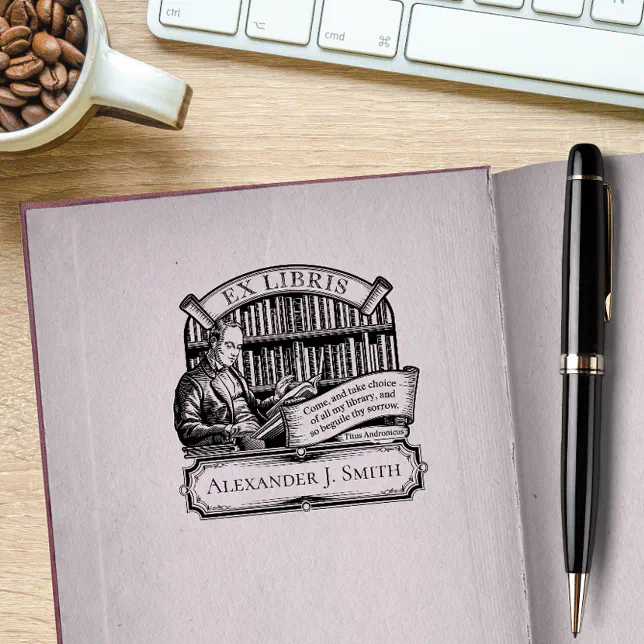 ctrl
opt
cmd ⌘
EX LIBRIS
Come, and take choice
of all my library, and
so beguile thy sorrow.
Titus Andronicus
ALEXANDER J. SMITH